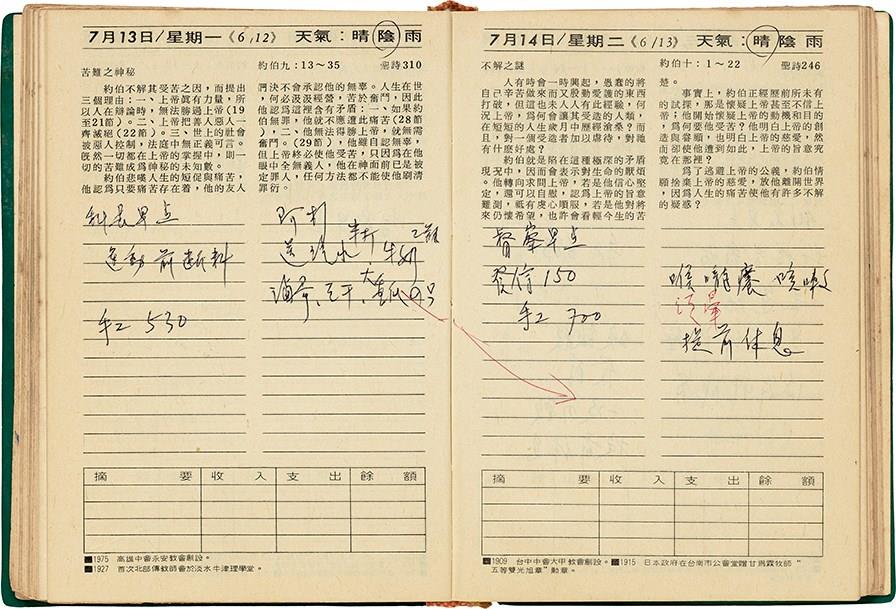 7月13日/星期一《6/12》 天氣：晴陰雨
苦難之神秘 約伯九：13～35 聖詩310
約伯不解其受苦之因，而提出
三個理由：一、上帝眞有力量，所
以人在辯論時，無法勝過上帝（19
至21節）。二、上帝把善人惡人一
齊滅絕（22節）。三、世上的社會
被惡人控制，法庭中無正義可言。
旣然一切都在上帝的掌握中，則一
切的苦難成爲神秘的未知數。
約伯悲嘆人生在世的短促與痛苦，
他認爲只要痛苦存在着，他的友人
們決不會承認他的無辜。人生在世
，何必汲汲經營，苦於奮鬥，因此
他認爲含有矛盾：一、如果約
伯無罪，他就不應遭此痛苦（28節
）。二、他無法得勝，就無需
奮鬥。（29節）。他雖自認無辜，
但上帝終必使他受苦，因爲在上帝
眼中全無義人，他在神面前已是被
定罪，任何方法都不能使他刷清
罪衍。
早点
運動前
手工 530
阿利
送 水
豆干、大
摘要 收入 支出 餘額
■1975 高雄中會永安教會創設。
■1927 首次北部傳教師會於淡水牛津理學堂。
7月14日/星期二《6/13》 天氣：晴陰雨
不解之謎 約伯十：1～22 聖詩246
人有時會一時興起，愚蠢的將
自己辛苦做成而又心愛的東西
打破，但這也未曾經驗，何
況上帝爲何會造出有血性的人類，
在短短的人生歲月中歷經滄桑？而
且，對一個弱者百般壓迫，對祂
有什麼好處？
約伯就是陷在這種極深的矛盾
現況中，因而會表示對生命的厭煩
。他轉向求問上帝，若是他信心堅
定，還可以自慰，認爲上帝的旨意
難測，祗有虛心順服，若是他對將
來仍懷希望，也許會看輕今生的苦
楚。
事實上，約伯懷疑歷世前所未有
的試探，那是懷疑上帝甚至不信上
帝，他開始懷疑上帝的動機和目的
，爲何要他受苦？他明白上帝的創
造與眷顧，也明白上帝的慈愛，然
而卻使他遭到如此，上帝的旨意究
竟在那裡？
爲了逃避上帝的公義，約伯情
願捨棄上帝的慈愛，放他離開世界
，因爲上帝對他還有許多不解
的疑惑？
早点
發信150
手工 700
喉嚨癢 咳嗽
頭暈
提前休息
摘要 收入 支出 餘額
■1909 台中中會大甲教會創設。■1915 日本政府在台南市公會堂贈甘爲霖牧師“
五等雙光旭章”勳章。